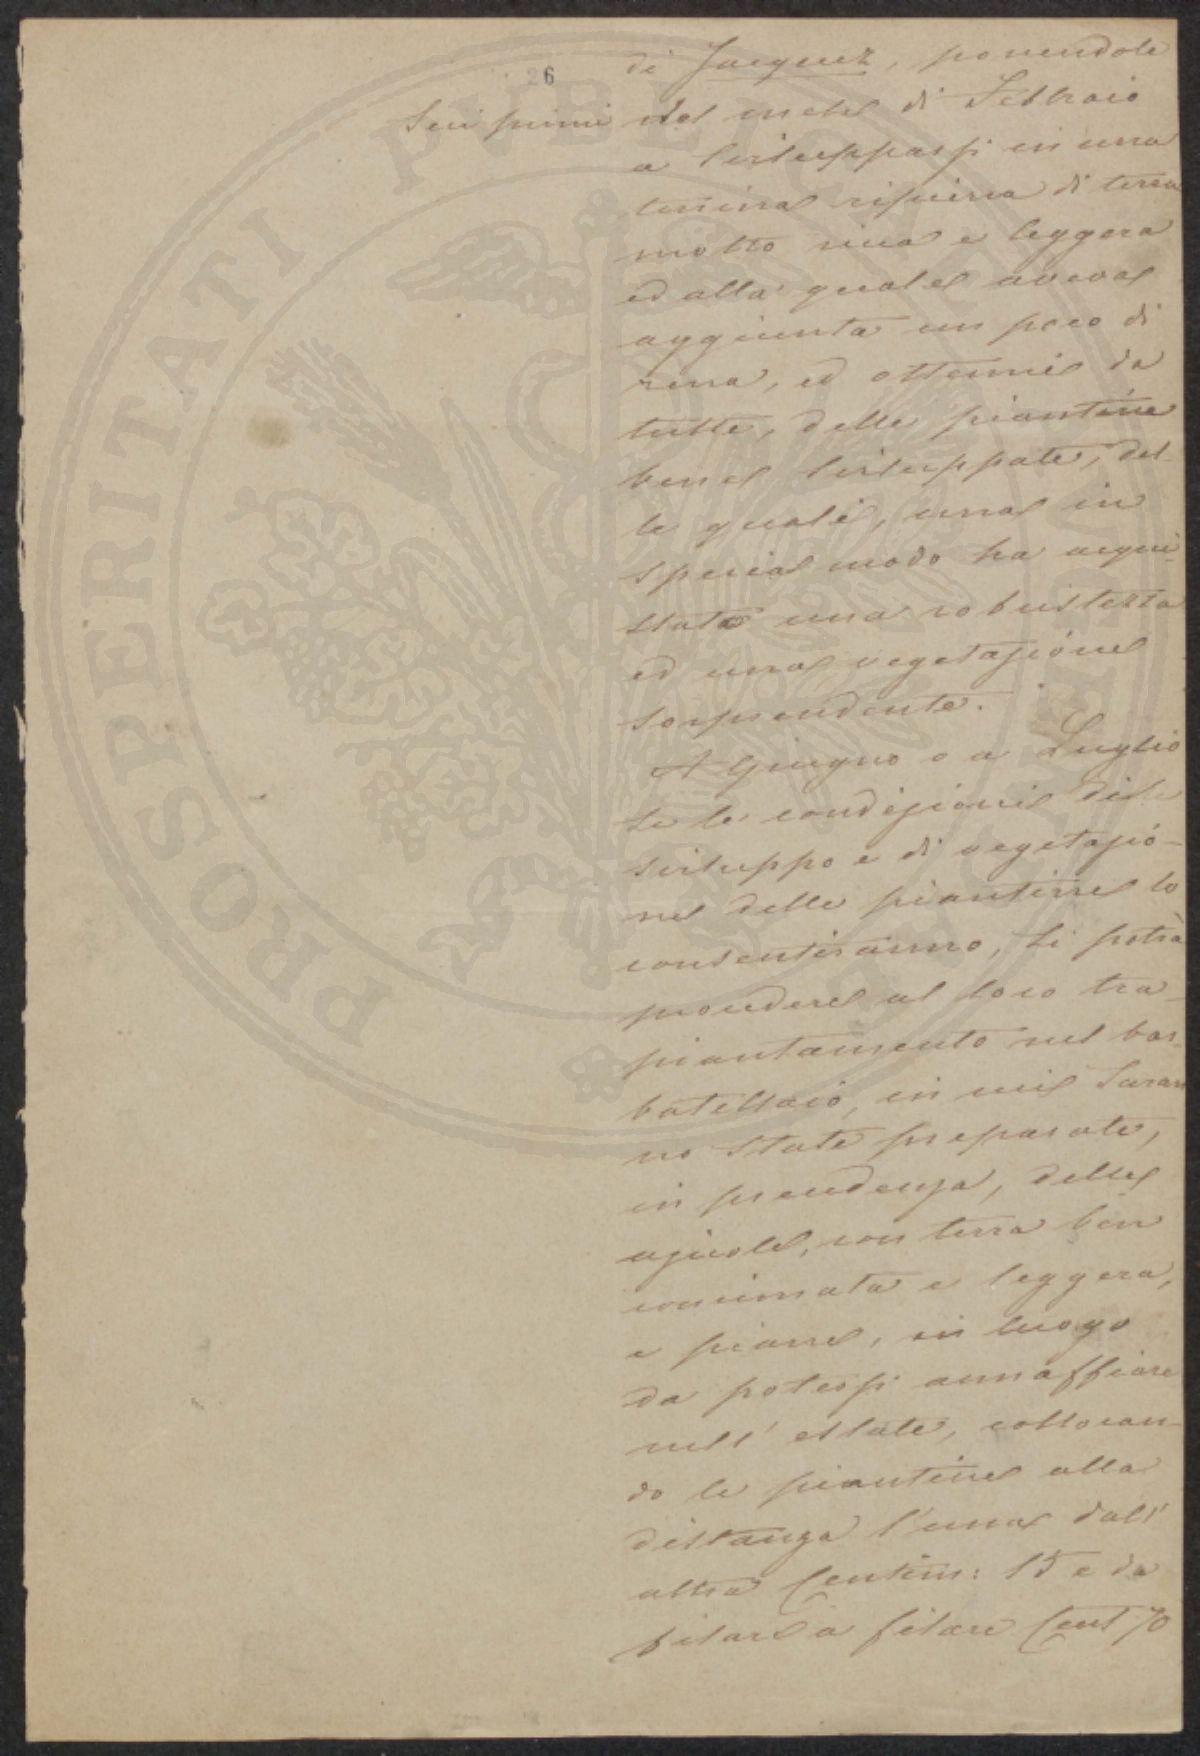 26
di Jacquez, ponendole
Sui primi del mese di Febbraio
a svilupparsi in una
terrina ripiena di terra
molto ricca e leggera
ed alla quale aveva
aggiunta un poco di
rena, ed ottenni da
tutte, delle piantine
bene sviluppate, del-
le quali, una in
special modo ha acqui-
stato una robustezza
ed una vegetazione
sorprendente.
A Giugno o a Luglio
se le condizioni di
sviluppo e di vegetazio-
ne delle piantine lo
consentiranno, si potrà
procedere al loro tra-
piantamento nel bar-
batellaio, in cui saran
no state preparate,
in precedenza, delle
ajuole, con terra ben
concimata e leggera,
e piane, in luogo
da potersi annaffiare
nell' estate, collocan-
do le piantine alla
distanza l'una dall'
altra Centim: 15 e da
filare a filare Cent 70
PROSPERITATI PVBLICAE